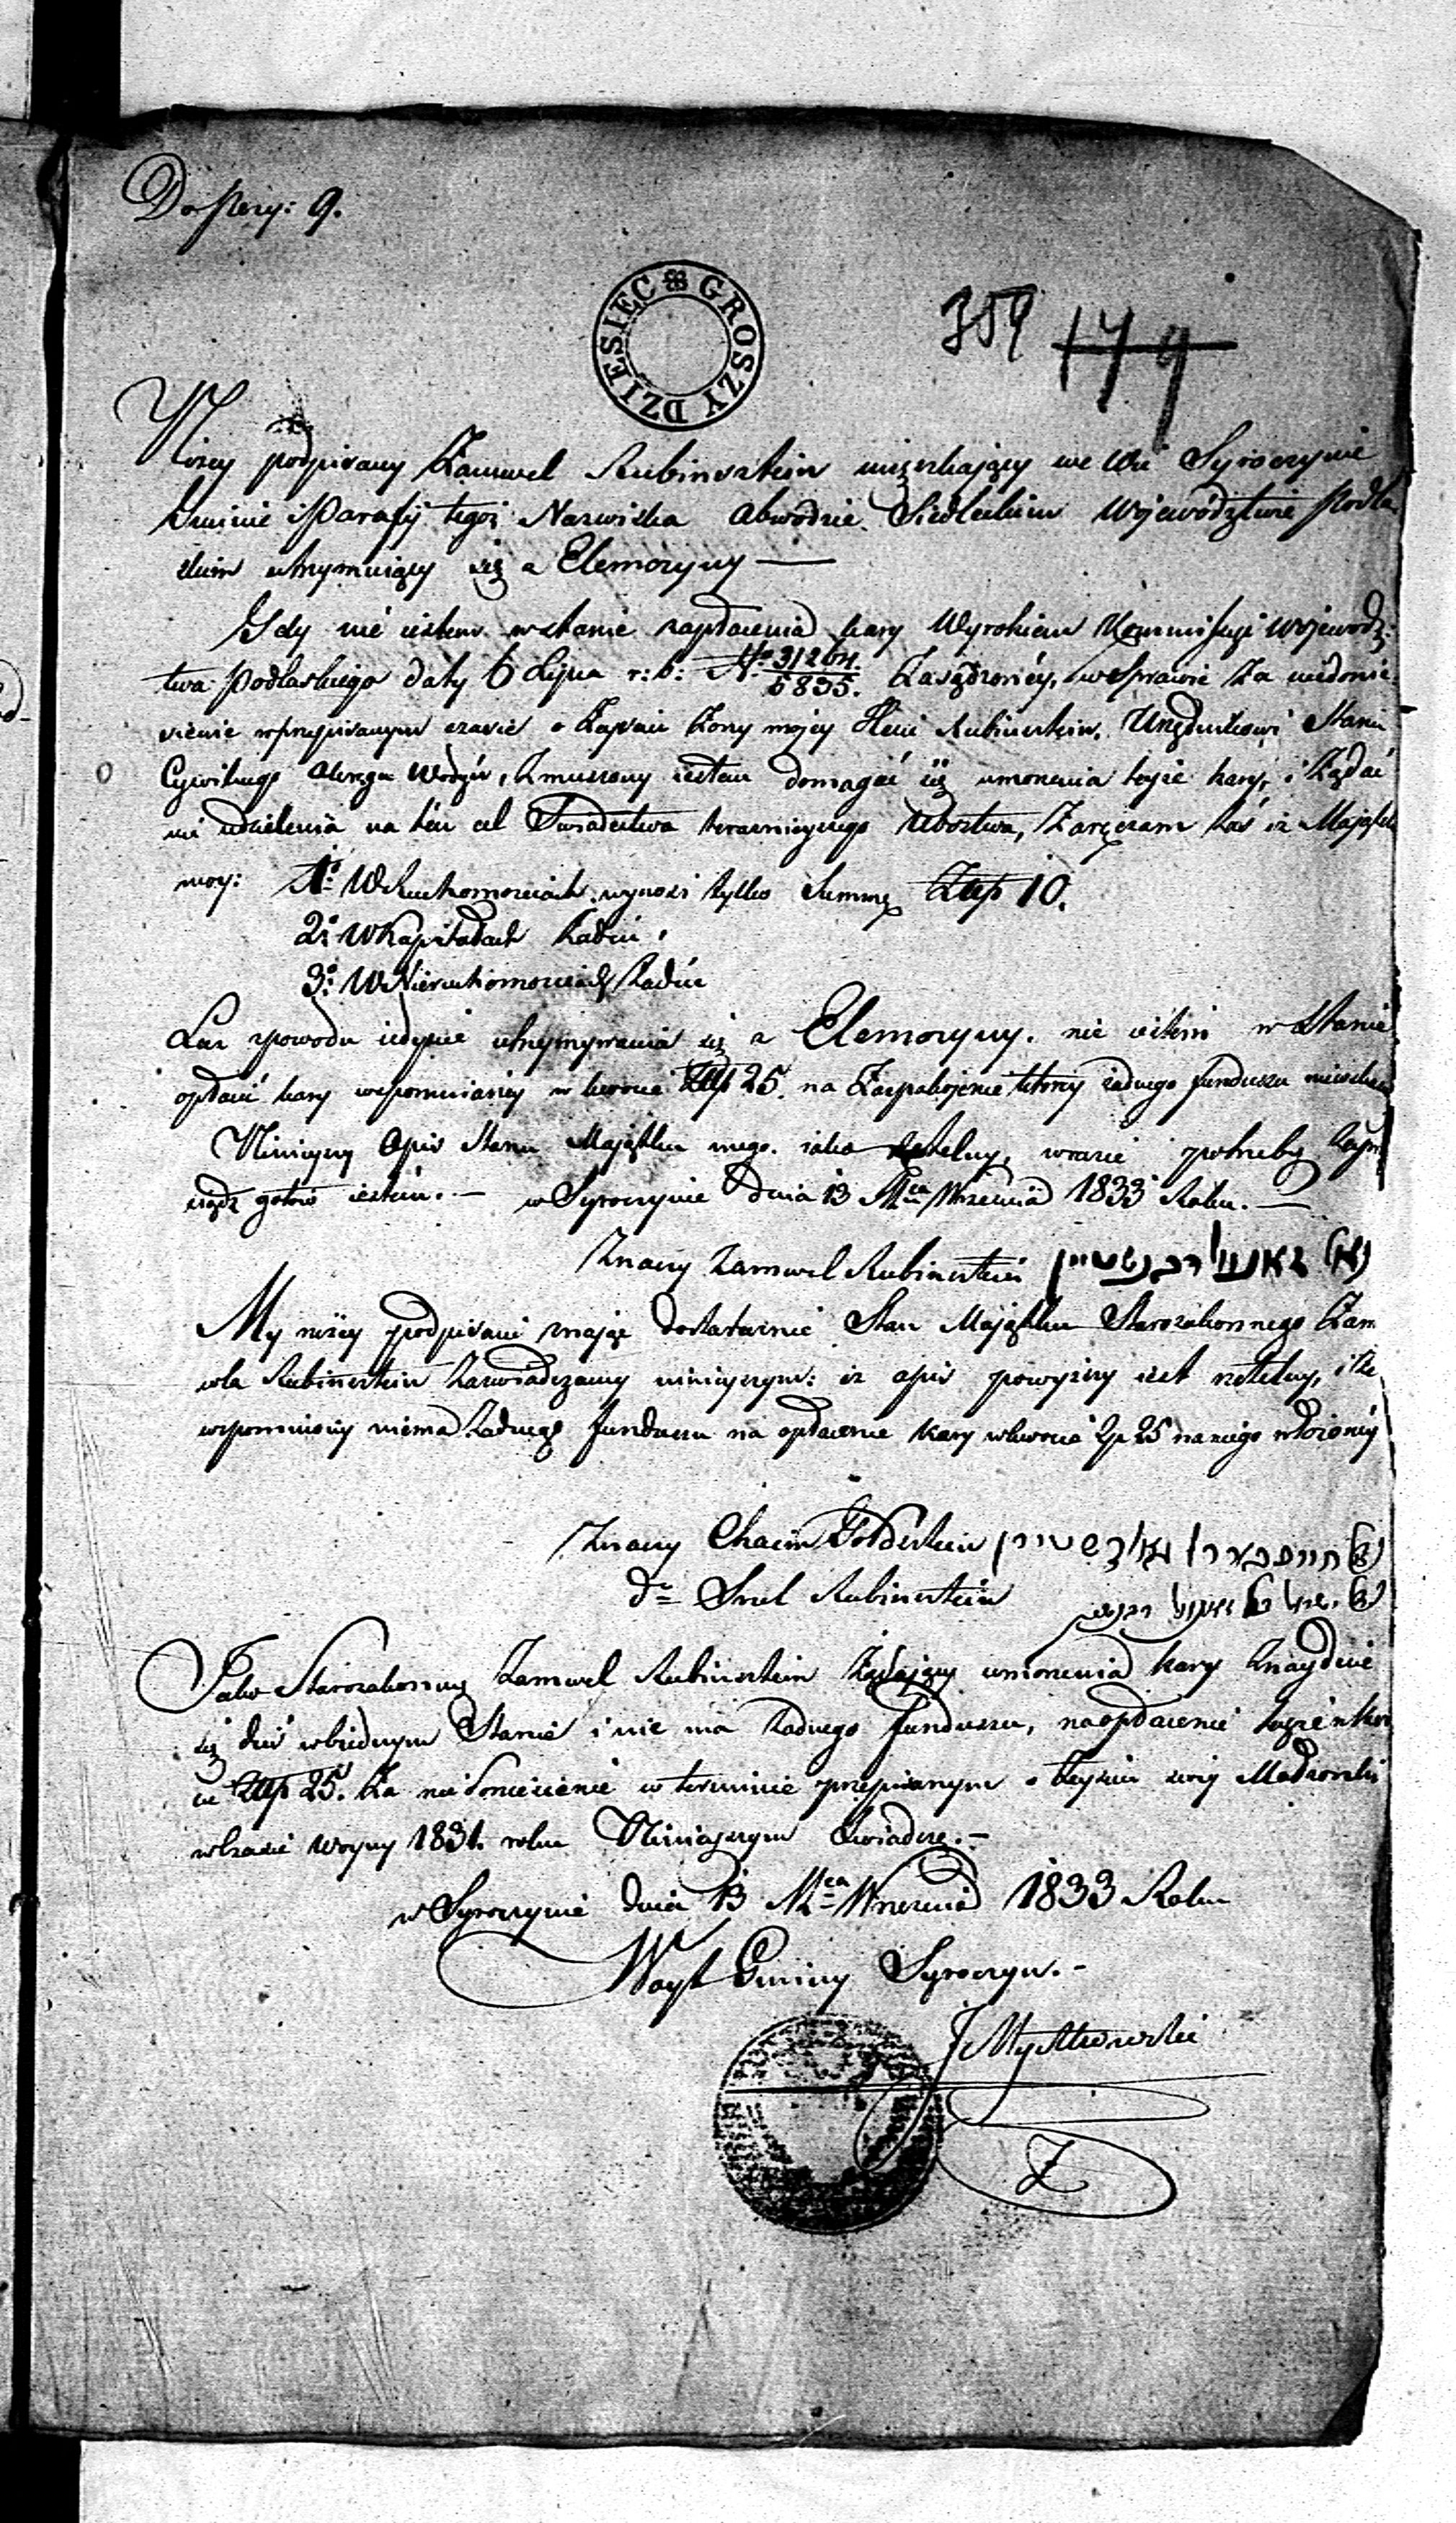 Do Pozy: 9.
GROSZY DZIESIĘĆ
359 179
Niżey podpisany Zamwel Rubinsztein mięszkaiący we Wsi Syroczynie
Gminie i Parafij tegoż Nazwiska Obwodzie Siedleckim Województwie Podla
skim utrzymuiący się z Elemozyny —
Gdy nié iestem w stanie zapłacenia kary Wyrokiem Kommissyi Wojewódz:
twa Podlaskiego daty 6 Lipca r: b: No 31264./5835. Zasądzonéy, w Sprawie Za niedonie
sienie w przepisanym czasie o Zgonie Żony mojey Rubinsztein, Urzędnikowi Stanu
Cywilnego Okręgu Wodyń, Zmuszony iestem domagać się umorzenia teyże kary, i Żądać
mi udzielenia na ten cel Świadectwa Ubóstwa, Zaręczam Zaś iż Majątek
moy: 1o W Ruchomościach wynosi tylko Summę Złłp 10.
2o W Kapitałach Żaden,
3o W Nieruchomościach Żaden
Zaś zpowodu iedynie utrzymywania się z Elemozyny. nie iestem w Stanie
opłacić kary wspomnianéy w kwocie Złłp 25. na Zaspokojenie któréy żadnego funduszu
Niniejszy Opis Stanu Majątku mego. iako rzetelny, wrazie potrzeby
gotów iestem. — w Syroczynie dnia 13 Mca Września 1833 Roku. —
Znaczy Zamwel Rubinsztein
My niżéy podpisani znając dostatecznie Stan Majątku Starozakonnego Zam
wla Rubinsztein zaświadczamy niniejszym: iż opis powyższy iest rzetelny, i że
wspomniony niema Żadnego funduszu na opłacenie kary w kwocie Złp 25 na niego włożonéy
Znaczy Chaim Goldsztein
do Srul Rubinsztein
Jako Starozakonny Zamwel Rubinsztein Żądaiący umorzenia kary Znayduie
się dziś w biednym Stanie i nie ma Żadnego funduszu, na opłacenie teyże w kwo
cie Złłp 25. Za nie doniesienie w terminie przepisanym o Zeyściu swéy Małżonki
w czasie Woyny 1831. roku Niniejszym Świadczę. —
w Syroczynie dnia 13 Mca Września 1833 Roku
Woyt Gminy Syroczyn. —